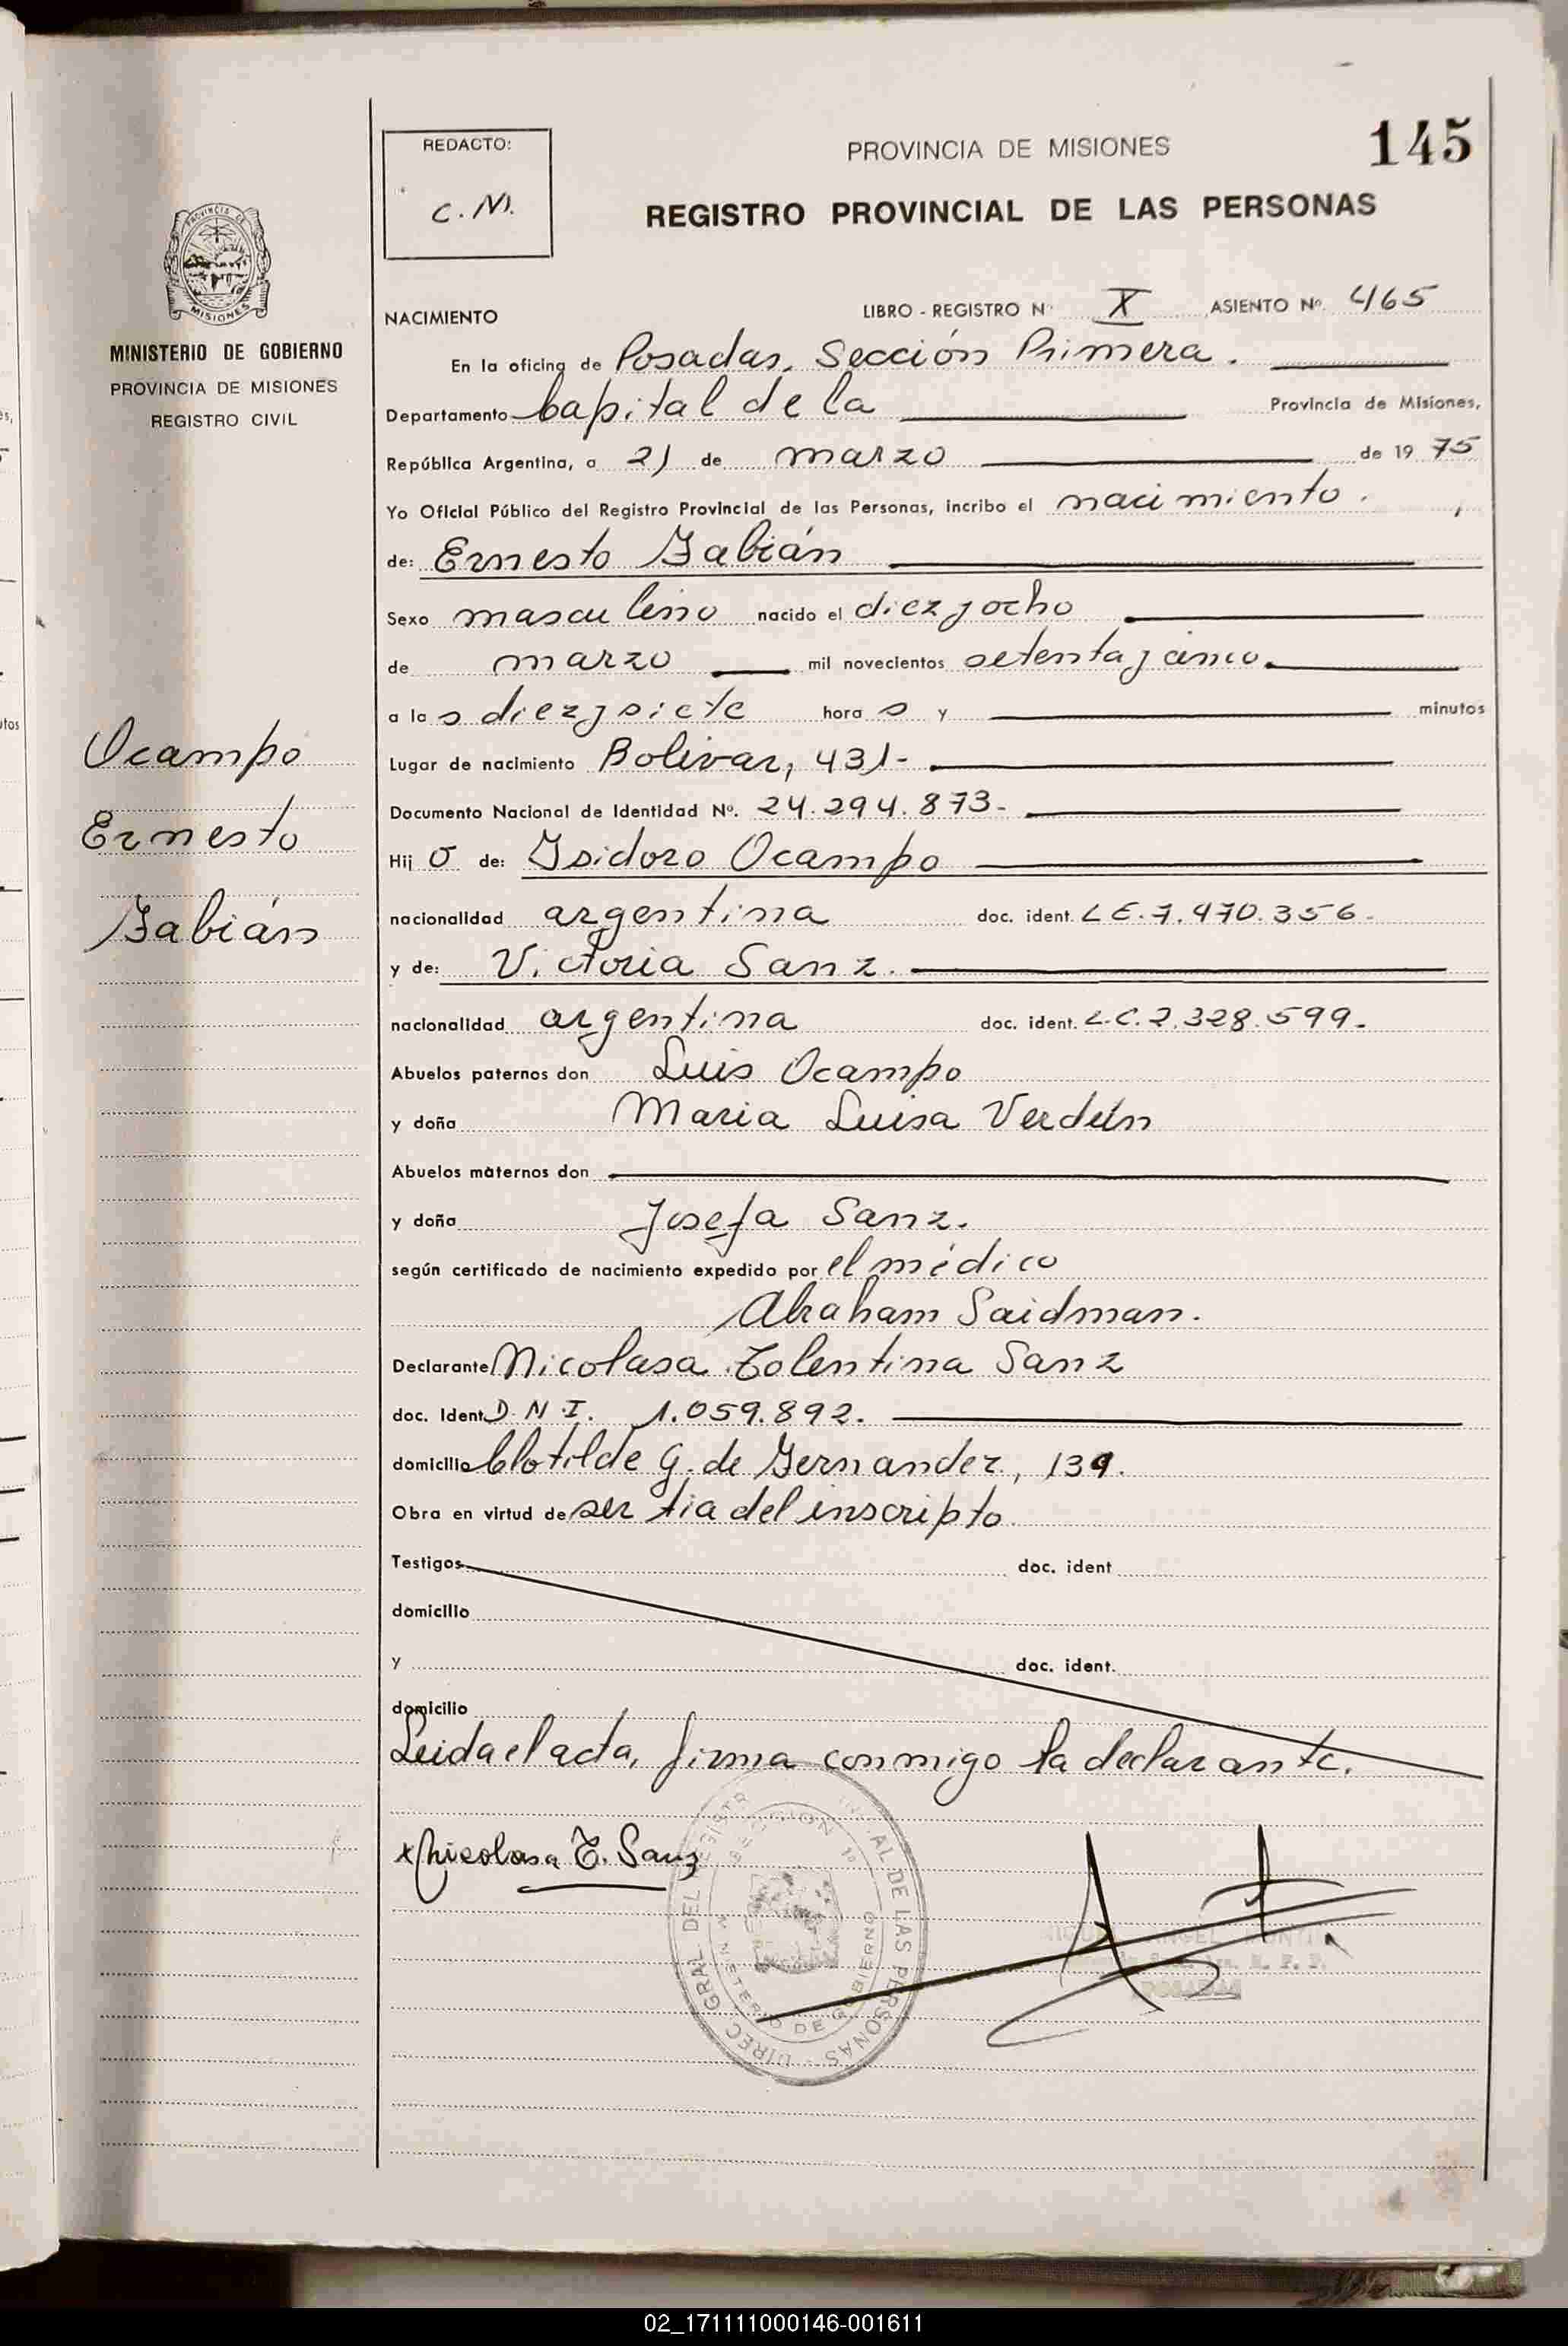 145
REDACTO:
C. M.
PROVINCIA DE MISIONES
REGISTRO PROVINCIAL DE LAS PERSONAS
PROVINCIA DE
MISIONES
MINISTERIO DE GOBIERNO
PROVINCIA DE MISIONES
REGISTRO CIVIL
Ocampo
Ernesto
Fabián
NACIMIENTO LIBRO - REGISTRO Nº X ASIENTO Nº. 465
En la oficina de Posadas, Sección Primera.
Departamento Capital de la Provincia de Misiones,
República Argentina, a 21 de marzo de 19 75
Yo Oficial Público del Registro Provincial de las Personas, incribo el nacimiento.
de: Ernesto Fabián
Sexo masculino nacido el diez y ocho
de marzo mil novecientos setenta y cinco.
a la s diez y siete hora s y minutos
Lugar de nacimiento Bolivar, 431-
Documento Nacional de Identidad Nº. 24.294.873-
Hij o de: Isidoro Ocampo
nacionalidad argentina doc. ident. L E. 7.470.356-
y de: Victoria Sanz.
nacionalidad argentina doc. ident. L.C. 2.328.599.
Abuelos paternos don Luis Ocampo
y doña Maria Luisa Verdún
Abuelos maternos don
y doña Josefa Sanz.
según certificado de nacimiento expedido por el médico
Abraham Saidman.
Declarante Nicolasa Tolentina Sanz
doc. Ident. D. N. I. 1.059.892.
domicilio Clotilde G. de Fernandez, 139.
Obra en virtud de ser tia del inscripto
Testigos doc. ident
domicilio
y doc. ident.
domicilio
Leida el acta, firma conmigo la declarante.
x Nicolasa T. Sanz
DIREC GRAL DEL REGISTR AL DE LAS PERSONAS
SECCION 1º
MINISTERIO DE GOBIERNO
ANGEL
POSADAS
02_171111000146-001611